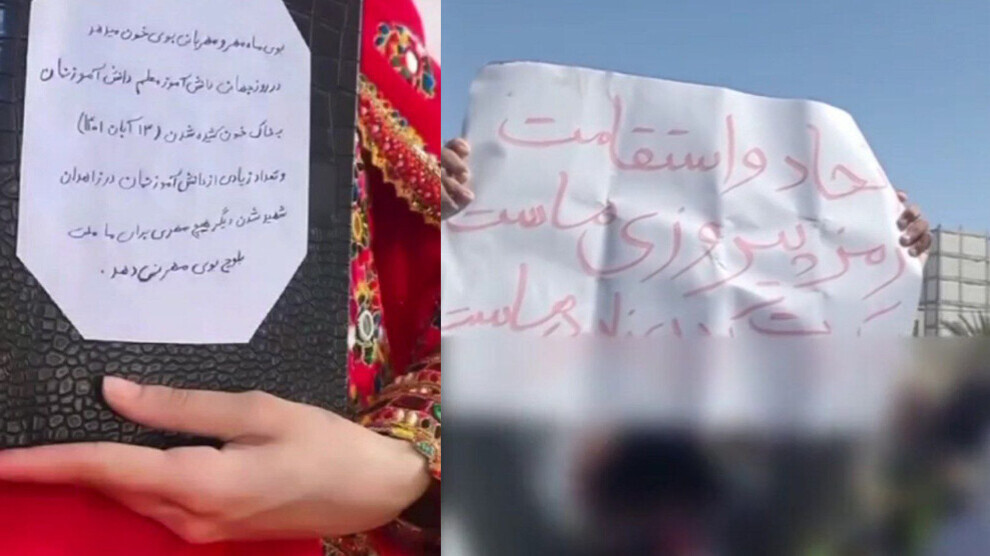 بوی ماه مهر و مهربانی بوی خون میدهد
در روز جهانی دانش آموز معلم دانش آموزشان
به خاک خون کشیده شدن (۱۳ آبان ۱۴۰۱)
و تعداد زیادی از دانش آموزشان در زاهدان
شهید شدن دیگر هیچ مهری برای ما ملت
بلوچ بوی مهر نمی دهد.
حاد و استقامت
رمز پیروزی ماست